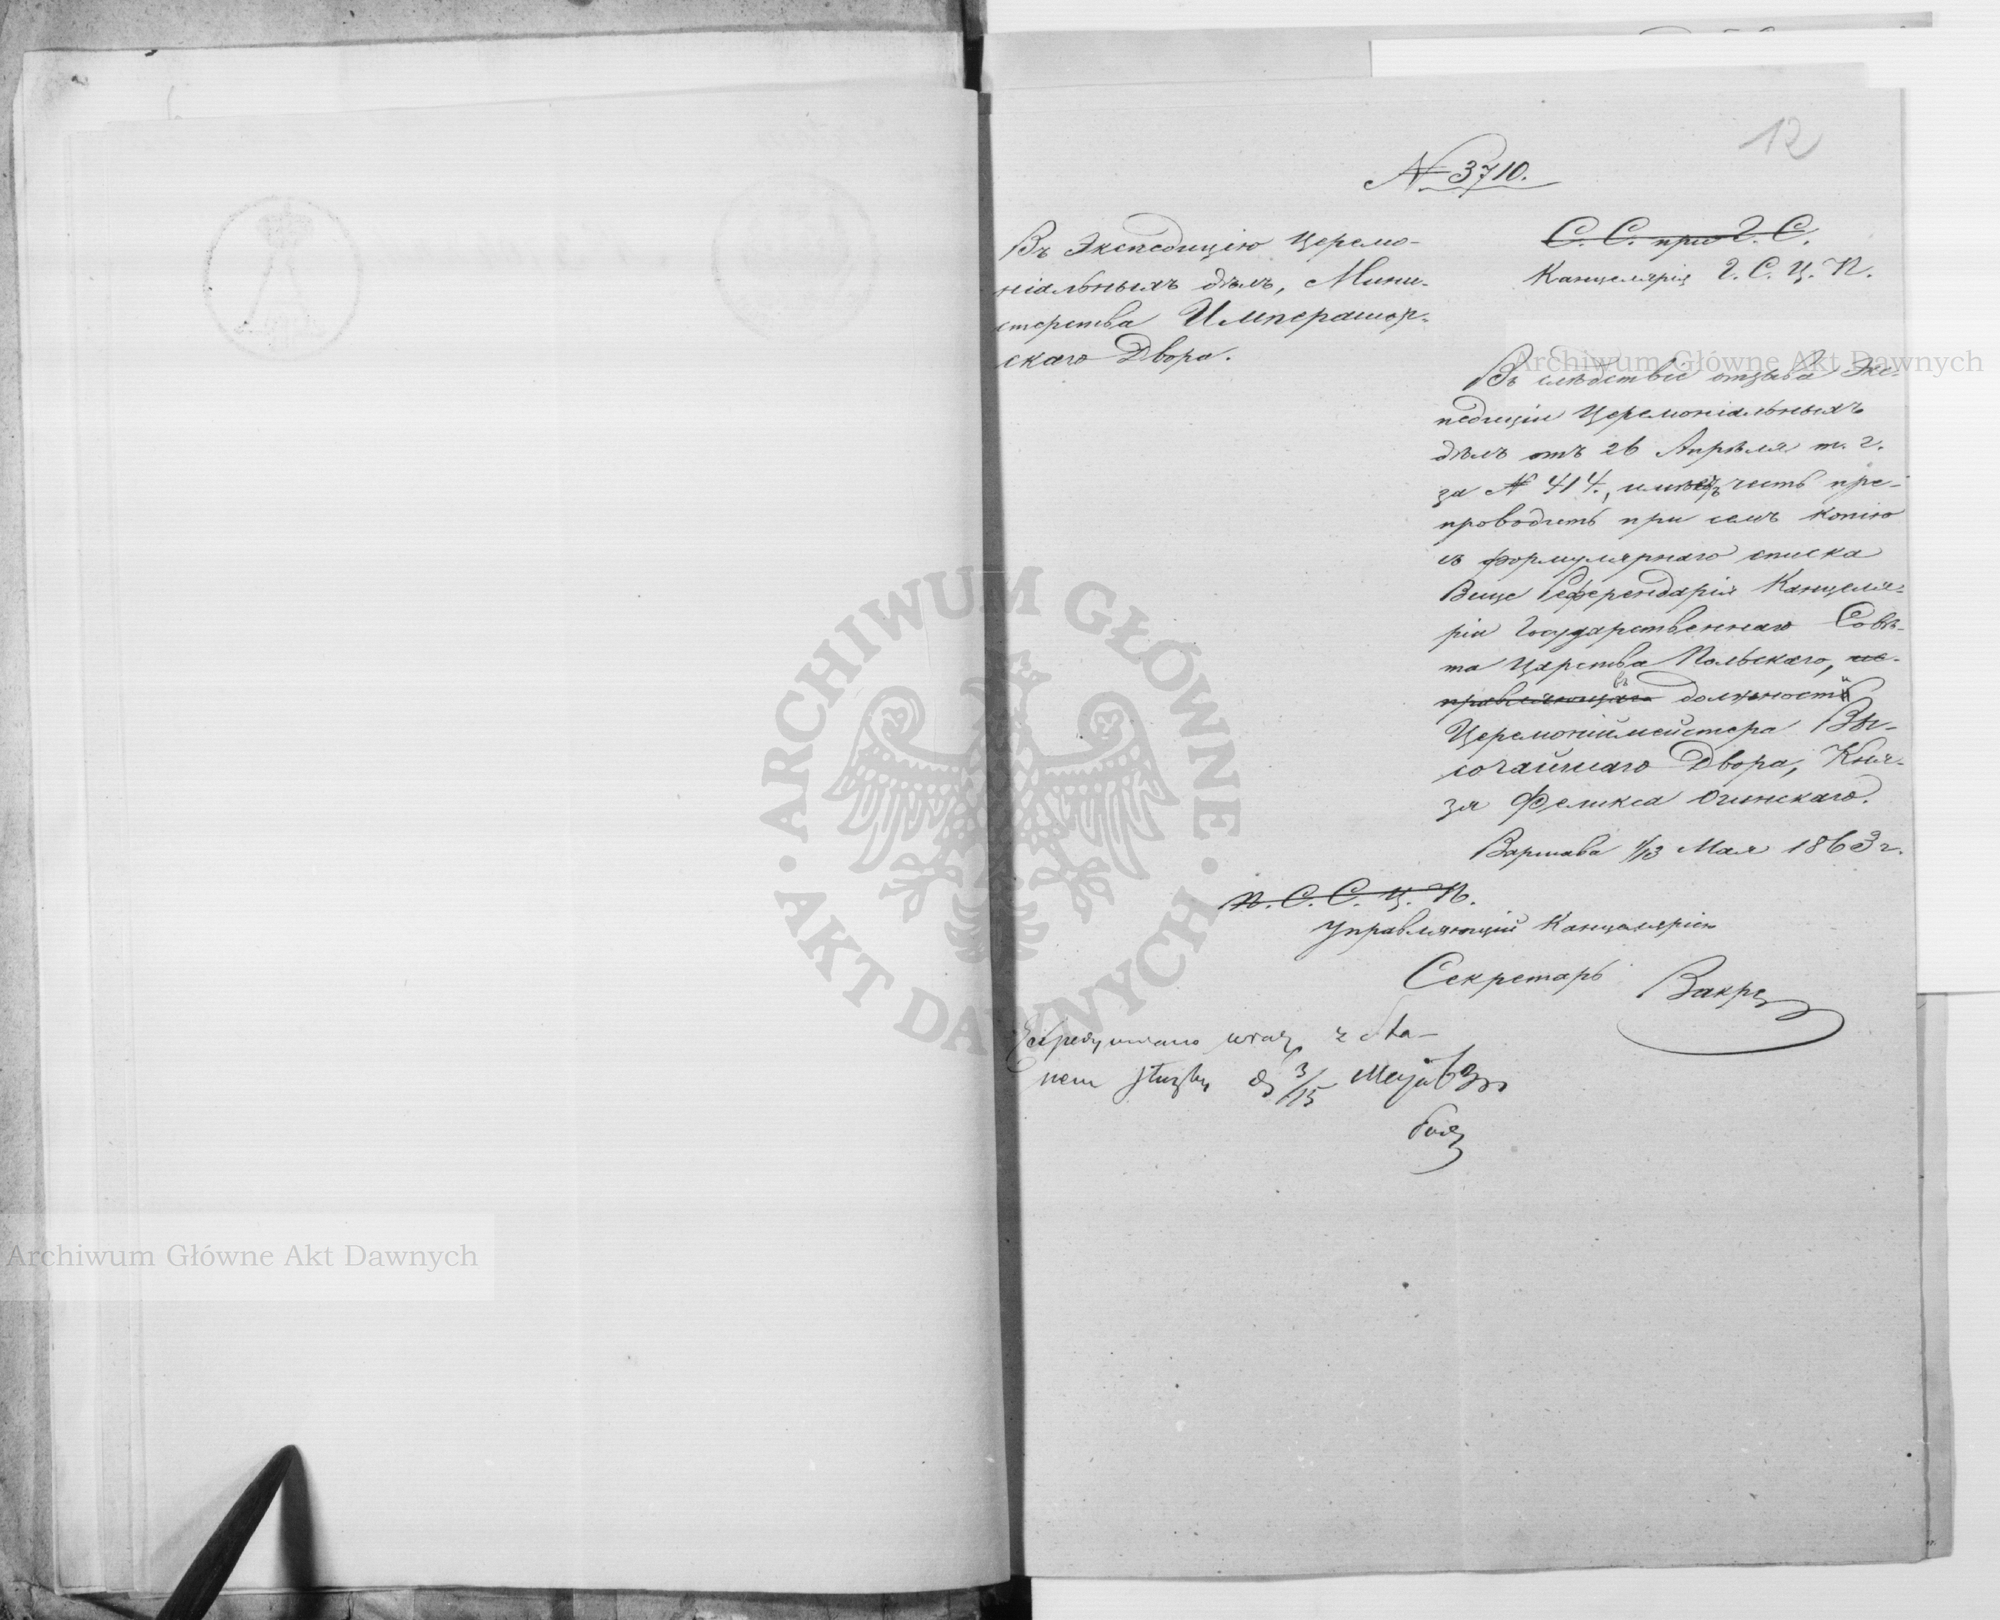 12
№ 3710.
Въ Экспедицію Церемо-
ніальныхъ дѣлъ, Мини-
стерства Император-
скаго Двора.
С. С. при Г. С.
Канцелярія Г. С. Ц. П.
Въ слѣдствіе отзыва Экс-
педиціи Церемоніальныхъ
дѣлъ отъ 26 Апрѣля т. г.
за № 414., имѣетъ честь пре-
проводить при семъ копію
съ формулярнаго списка
Вице Референдарія Канцеля-
ріи Государственнаго Совѣ-
та Царства Польскаго, ис-
правляющаго въ должности
Церемоніймейстера Вы-
сочайшаго Двора, Кня-
зя Феликса Огинскаго.
Варшава 1/13 Мая 1863 г.
П. С. С. Ц. П.
Управляющій Канцеляріею
Секретарь
wraz z sta-
nem służby d 3/15 Maja 63 r
Archiwum Główne Akt Dawnych
Archiwum Główne Akt Dawnych
· ARCHIWUM GŁÓWNE · AKT DAWNYCH